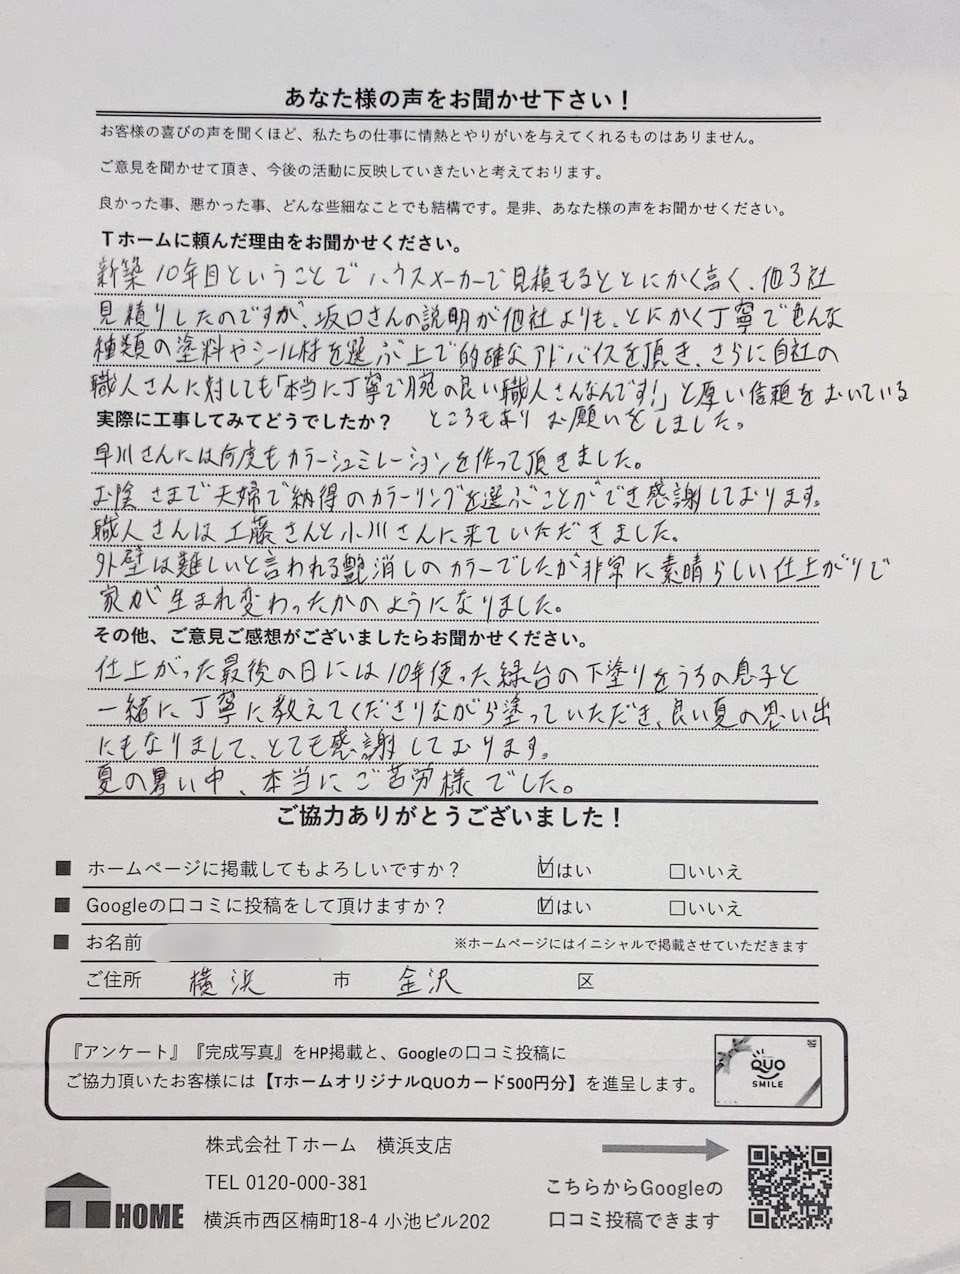 あなた様の声をお聞かせ下さい！
お客様の喜びの声を聞くほど、私たちの仕事に情熱とやりがいを与えてくれるものはありません。
ご意見を聞かせて頂き、今後の活動に反映していきたいと考えております。
良かった事、悪かった事、どんな些細なことでも結構です。是非、あなた様の声をお聞かせください。
Ｔホームに頼んだ理由をお聞かせください。
新築10年目ということでハウスメーカーで見積もるととにかく高く、他3社
見積りしたのですが、坂口さんの説明が他社よりも、とにかく丁寧で色んな
種類の塗料やシール材を選ぶ上で的確なアドバイスを頂き、さらに自社の
職人さんに対しても「本当に丁寧で腕の良い職人さんなんです！」と厚い信頼をおいている
ところもあり お願いをしました。
実際に工事してみてどうでしたか？
早川さんには何度もカラーシュミレーションを作って頂きました。
お陰さまで夫婦で納得のカラーリングを選ぶことができ感謝しております。
職人さんは工藤さんと小川さんに来ていただきました。
外壁は難しいと言われる艶消しのカラーでしたが非常に素晴らしい仕上がりで
家が生まれ変わったかのようになりました。
その他、ご意見ご感想がございましたらお聞かせください。
仕上がった最後の日には10年使った縁台の下塗りをうちの息子と
一緒に丁寧に教えてくださりながら塗っていただき、良い夏の思い出
にもなりまして、とても感謝しております。
夏の暑い中、本当にご苦労様でした。
ご協力ありがとうございました！
■ ホームページに掲載してもよろしいですか？ ☑はい □いいえ
■ Googleの口コミに投稿をして頂けますか？ ☑はい □いいえ
■ お名前 ※ホームページにはイニシャルで掲載させていただきます
ご住所 横浜 市 金沢 区
『アンケート』『完成写真』をHP掲載と、Googleの口コミ投稿に
ご協力頂いたお客様には【TホームオリジナルQUOカード500円分】を進呈します。
QUO
SMILE
株式会社Ｔホーム 横浜支店
TEL 0120-000-381
横浜市西区楠町18-4 小池ビル202
T HOME
こちらからGoogleの
口コミ投稿できます